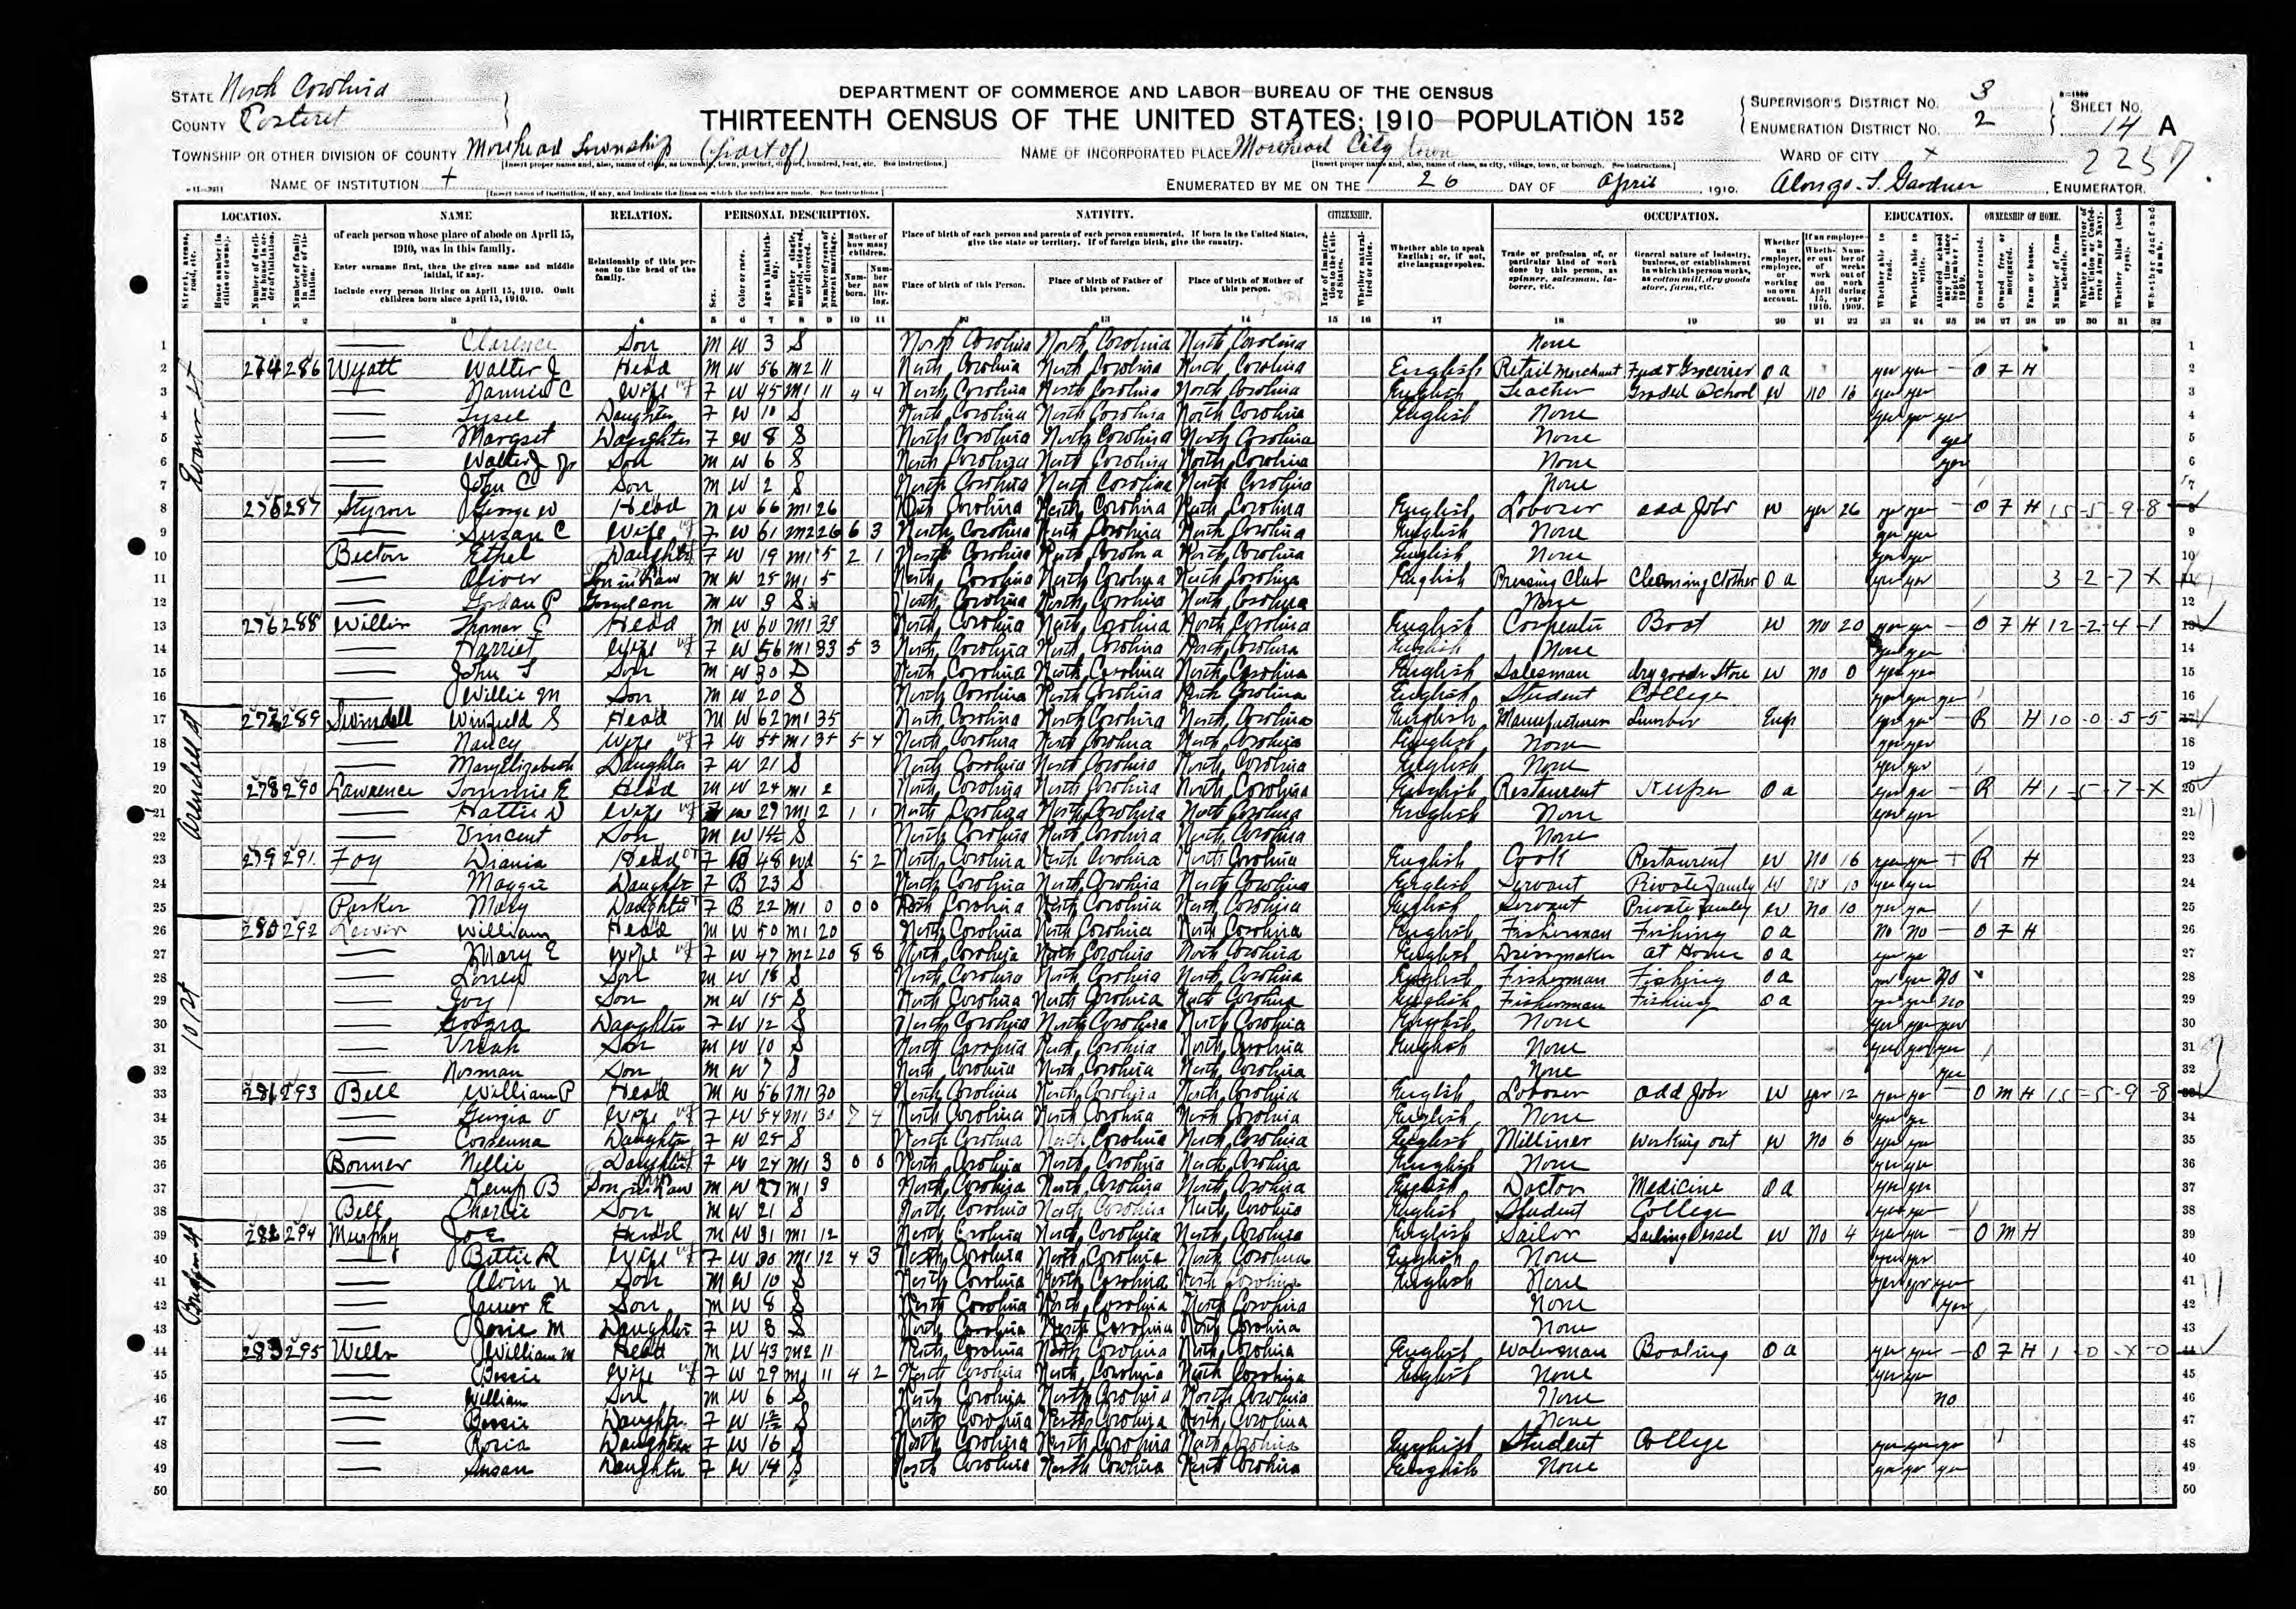 DEPARTMENT OF COMMERCE AND LABOR-BUREAU OF THE CENSUS
THIRTEENTH CENSUS OF THE UNITED STATES: 1910-POPULATION 152
STATE North Carolina
COUNTY Carteret
SUPERVISOR'S DISTRICT NO. 3
ENUMERATION DISTRICT NO. 2
SHEET NO. 14 A
2257
TOWNSHIP OR OTHER DIVISION OF COUNTY Morehead Township (part of)
NAME OF INCORPORATED PLACE Morehead City town
WARD OF CITY x
NAME OF INSTITUTION x
ENUMERATED BY ME ON THE 26 DAY OF April, 1910. Alonzo T. Gardner, ENUMERATOR.
LOCATION. NAME RELATION. PERSONAL DESCRIPTION. NATIVITY. CITIZENSHIP. OCCUPATION. EDUCATION. OWNERSHIP OF HOME.
of each person whose place of abode on April 15, 1910, was in this family.
Enter surname first, then the given name and middle initial, if any.
Include every person living on April 15, 1910. Omit children born since April 15, 1910.
Relationship of this person to the head of the family.
Place of birth of each person and parents of each person enumerated. If born in the United States, give the state or territory. If of foreign birth, give the country.
Place of birth of this Person. Place of birth of Father of this person. Place of birth of Mother of this person.
Whether able to speak English; or, if not, give language spoken.
Trade or profession of, or particular kind of work done by this person, as spinner, salesman, laborer, etc.
General nature of industry, business, or establishment in which this person works, as cotton mill, dry goods store, farm, etc.
1 Clarence Son M W 3 S North Carolina North Carolina North Carolina None
2 274 286 Wyatt Walter J Head M W 56 M2 11 North Carolina North Carolina North Carolina English Retail Merchant Feed & Groceries O a yes yes O F H
3 Nannie C Wife F W 45 M1 11 4 4 North Carolina North Carolina North Carolina English Teacher Graded School W no 16 yes yes
4 Daughter F W 10 S North Carolina North Carolina North Carolina English None yes yes yes
5 Margaet Daughter F W 8 S North Carolina North Carolina North Carolina None yes
6 Walter J Jr Son M W 6 S North Carolina North Carolina North Carolina None yes
7 John C Son M W 2 S North Carolina North Carolina North Carolina None
8 275 287 Styron George W Head M W 66 M1 26 North Carolina North Carolina North Carolina English Laborer odd Jobs W yes 26 yes yes O F H 15-5-9-8
9 Susan C Wife F W 61 M2 26 6 3 North Carolina North Carolina North Carolina English None yes yes
10 Becton Ethel Daughter F W 19 M1 5 2 1 North Carolina North Carolina North Carolina English None yes yes
11 Oliver Son in Law M W 25 M1 5 North Carolina North Carolina North Carolina English Pressing Club Cleaning Clothes O a yes yes 3-2-7-X
12 Gordan P Grandson M W 3 S North Carolina North Carolina North Carolina None
13 276 288 Willis Thomas C Head M W 60 M1 33 North Carolina North Carolina North Carolina English Carpenter Boat W no 20 yes yes O F H 12-2-4-1
14 Harriet Wife F W 56 M1 33 5 3 North Carolina North Carolina North Carolina English None yes yes
15 John T Son M W 30 D North Carolina North Carolina North Carolina English Salesman dry goods Store W no 0 yes yes
16 Willie M Son M W 20 S North Carolina North Carolina North Carolina English Student College yes yes yes
17 277 289 Swindell Winfield S Head M W 62 M1 35 North Carolina North Carolina North Carolina English Manufacturer Lumber Emp yes yes R H 10-0-5-5
18 Nancy Wife F W 55 M1 35 5 4 North Carolina North Carolina North Carolina English None yes yes
19 Mary Elizabeth Daughter F W 21 S North Carolina North Carolina North Carolina English None yes yes
20 278 290 Lawrence Tommie E Head M W 24 M1 2 North Carolina North Carolina North Carolina English Restaurent Keeper O a yes yes R H 1-5-7-X
21 Hattie D Wife F W 27 M1 2 1 1 North Carolina North Carolina North Carolina English None yes yes
22 Vincent Son M W S North Carolina North Carolina North Carolina None
23 279 291 Foy Head F B 48 Wd 5 2 North Carolina North Carolina North Carolina English Cook Restaurent W no 16 yes yes R H
24 Maggie Daughter F B 23 S North Carolina North Carolina North Carolina English Servant Private Family W no 10 yes yes
25 Parker Mary Daughter F B 22 M1 0 0 0 North Carolina North Carolina North Carolina English Servant Private Family W no 10 yes yes
26 280 292 Lewis William Head M W 50 M1 20 North Carolina North Carolina North Carolina English Fisherman Fishing O a no no O F H
27 Mary E Wife F W 47 M2 20 8 8 North Carolina North Carolina North Carolina English Dressmaker at Home O a yes yes
28 Son M W 18 S North Carolina North Carolina North Carolina English Fisherman Fishing O a yes yes no
29 Son M W 15 S North Carolina North Carolina North Carolina English Fisherman Fishing O a yes yes no
30 Daughter F W 12 S North Carolina North Carolina North Carolina English None yes yes yes
31 Uriah Son M W 10 S North Carolina North Carolina North Carolina English None yes yes yes
32 Norman Son M W 7 S North Carolina North Carolina North Carolina None yes
33 281 293 Bell William P Head M W 56 M1 30 North Carolina North Carolina North Carolina English Laborer odd Jobs W yes 12 yes yes O M H 15-5-9-8
34 Georgia V Wife F W 54 M1 30 7 4 North Carolina North Carolina North Carolina English None yes yes
35 Daughter F W 25 S North Carolina North Carolina North Carolina English Milliner Working out W no 6 yes yes
36 Bonner Nellie Daughter F W 24 M1 3 0 0 North Carolina North Carolina North Carolina English None yes yes
37 Kemp B Son in Law M W 27 M1 3 North Carolina North Carolina North Carolina English Doctor Medicine O a yes yes
38 Bell Charlie Son M W 21 S North Carolina North Carolina North Carolina English Student College yes yes
39 282 294 Murphy Joe Head M W 31 M1 12 North Carolina North Carolina North Carolina English Sailor Sailing Vessel W no 4 yes yes O M H
40 Bettie R Wife F W 30 M1 12 4 3 North Carolina North Carolina North Carolina English None yes yes
41 Alvin N Son M W 10 S North Carolina North Carolina North Carolina English None yes yes yes
42 James E Son M W 8 S North Carolina North Carolina North Carolina None yes
43 Josie M Daughter F W 3 S North Carolina North Carolina North Carolina None
44 283 295 Willis William M Head M W 43 M2 11 North Carolina North Carolina North Carolina English Waterman Boating O a yes yes O F H 1-0-X-0
45 Bessie Wife F W 29 M1 11 4 2 North Carolina North Carolina North Carolina English None yes yes
46 William Son M W 6 S North Carolina North Carolina North Carolina None no
47 Bessie Daughter F W S North Carolina North Carolina North Carolina None
48 Rosia Daughter F W 16 S North Carolina North Carolina North Carolina English Student College yes yes yes
49 Susan Daughter F W 14 S North Carolina North Carolina North Carolina English None yes yes yes
50
Evans St
Arendell St
10 St
Bridges St